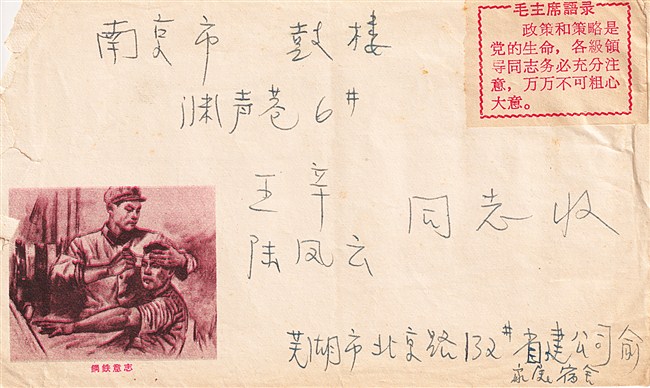 南京市 鼓楼
渊声巷6#
王辛
陆凤云
同志收
芜湖市北京路132#省建公司俞
家属宿舍
毛主席語录
政策和策略是
党的生命，各級領
导同志务必充分注
意，万万不可粗心
大意。
鋼鉄意志